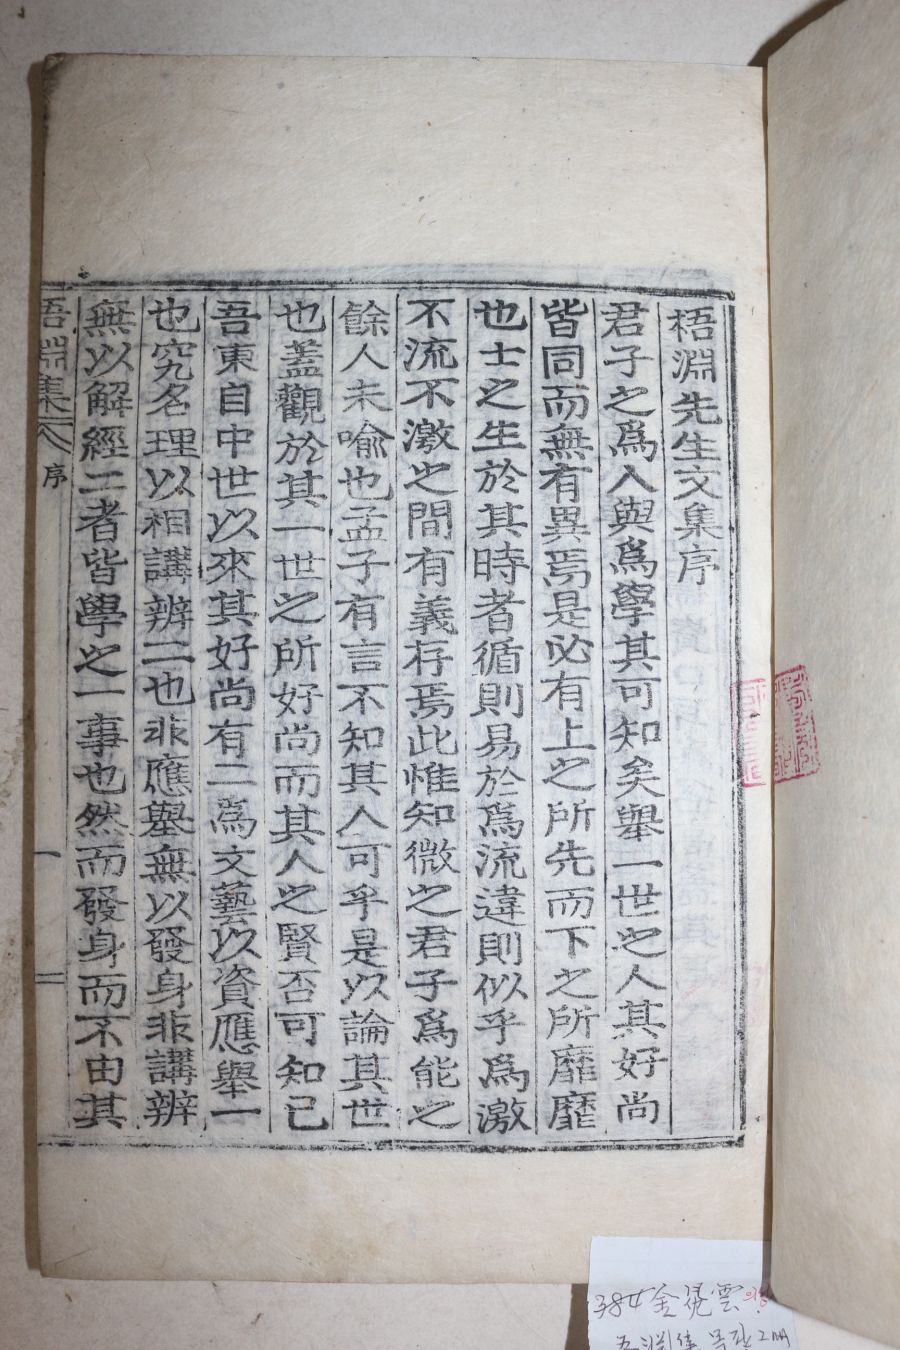 梧淵先生文集序
君子之爲人與爲學其可知矣舉一世之人其好尚
皆同而無有異焉是必有上之所先而下之所靡靡
也士之生於其時者循則易於爲流違則似乎爲激
不流不激之間有義存焉此惟知微之君子爲能之
餘人未喩也孟子有言不知其人可乎是以論其世
也蓋觀於其一世之所好尚而其人之賢否可知已
吾東自中世以來其好尚有二爲文藝以資應舉一
也究名理以相講辨二也非應舉無以發身非講辨
無以解經二者皆學之一事也然而發身而不由其
梧淵集 序 一